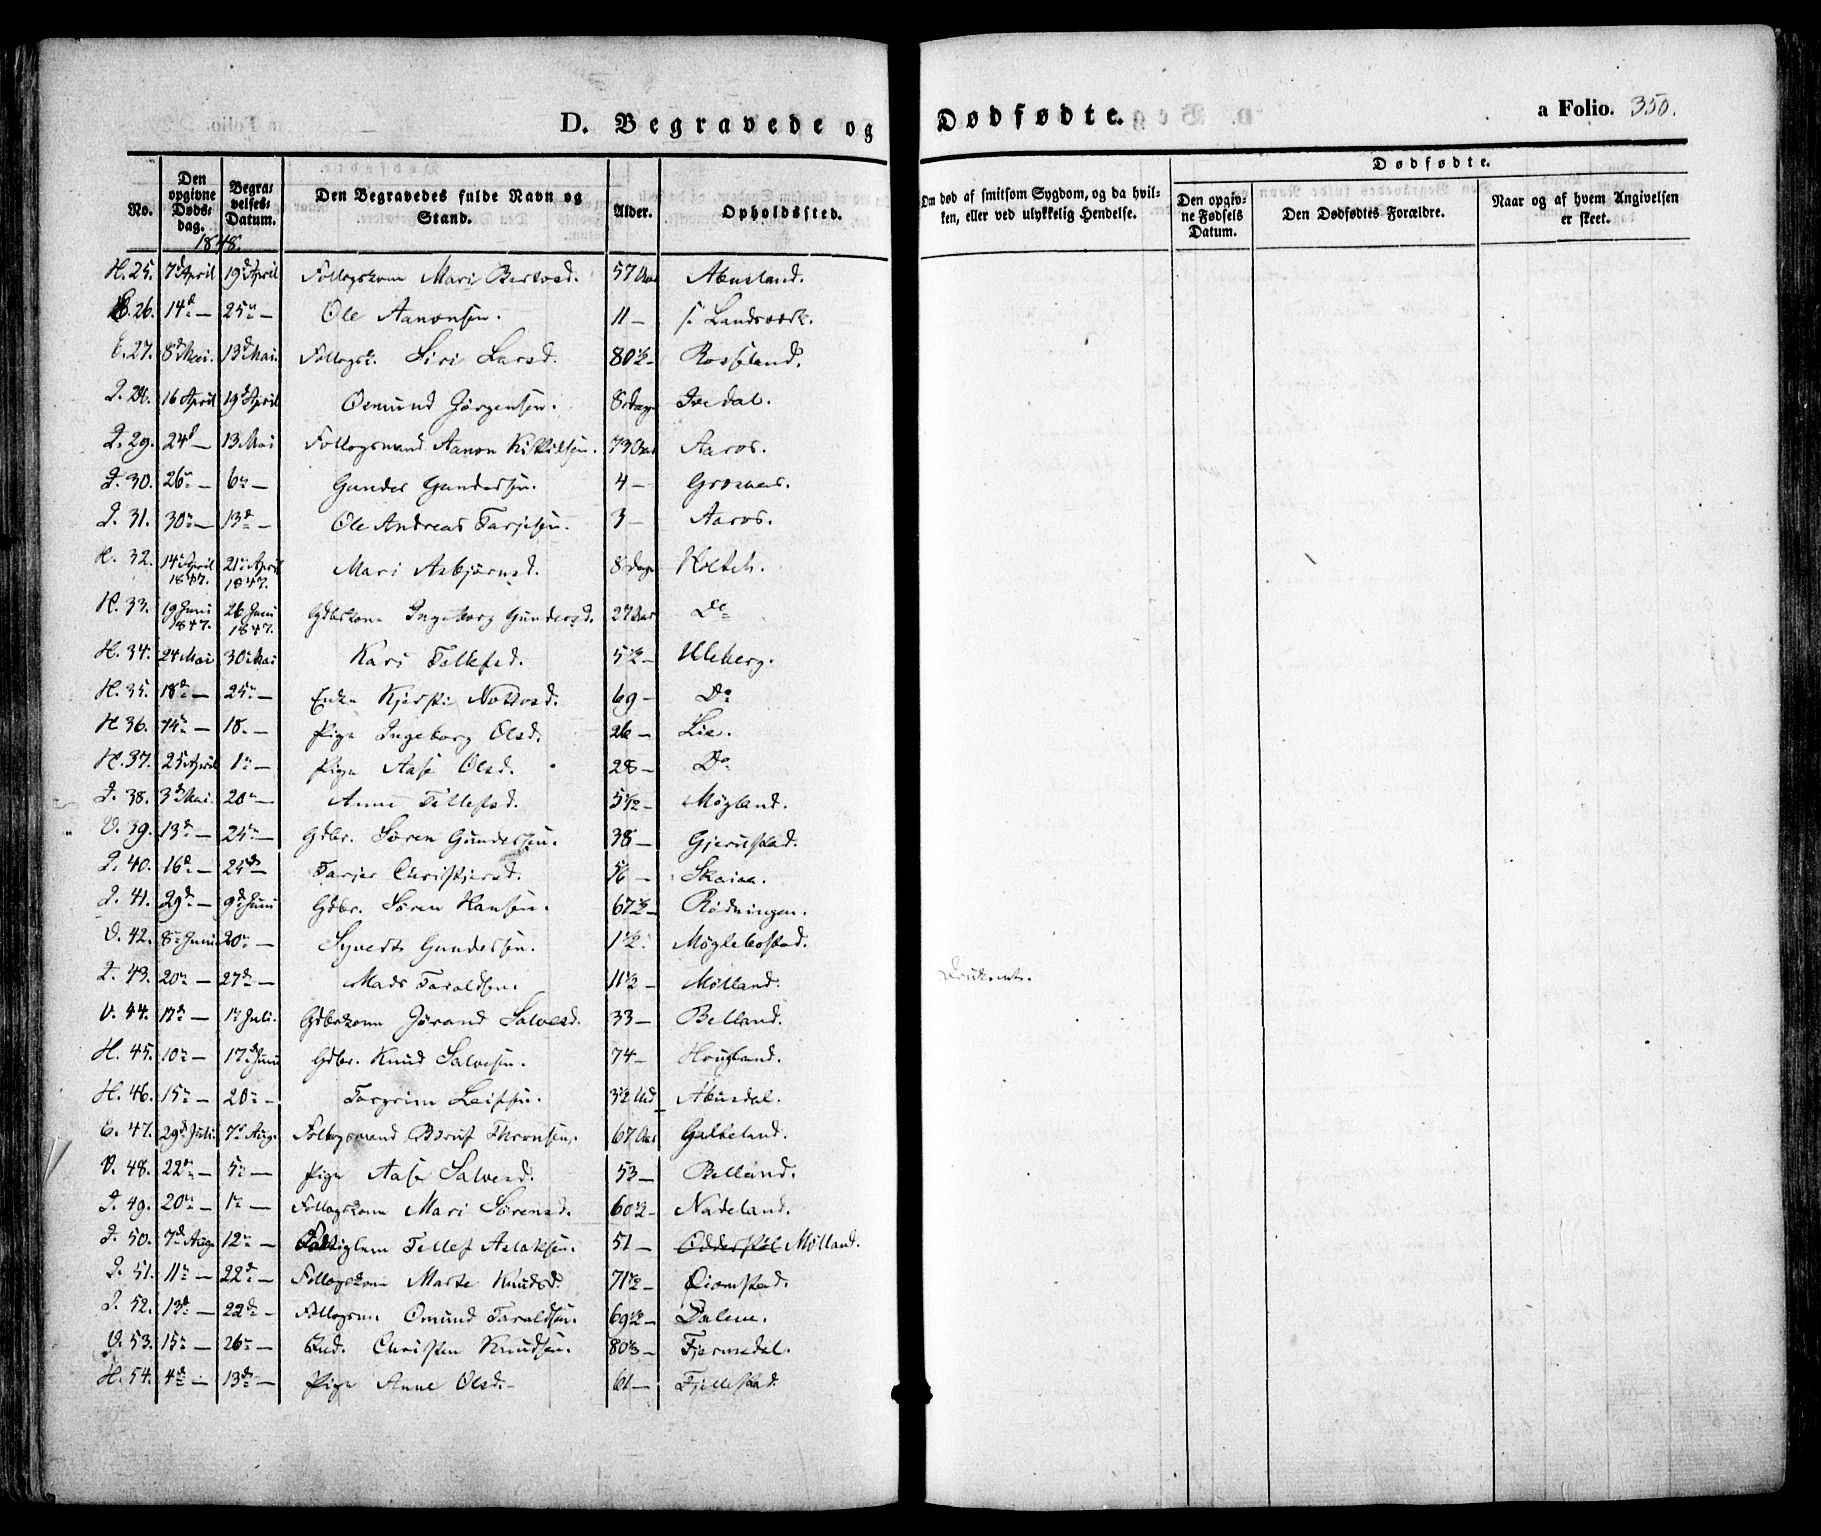 D. Begravede og Dødfødte. a Folio. 350.
No. | Den opgivne Døds-dag. | Begra-velses-Datum. | Den Begravedes fulde Navn og Stand. | Alder. | Opholdssted. | Om død af smitsom Sygdom, og da hvil-ken, eller ved ulykkelig Hendelse. | Dødfødte. | Den opgiv-ne Fødsels Datum. | Den Dødfødtes Forældre. | Naar og af hvem Angivelsen er skeet.
1848.
H. 25. 7d April 19d April Follogskone Mari Bertosd. 57 Aar Abusland.
26. 14d — 25n — Ole Aanonsen. 11 — Landsværk.
E. 27. 8d Mai. 13d Mai. Follogsk. Siri Larsd. 80 1/2 — Rosseland.
28. 16 April 19d April Osmund Jörgensen. 8 dage Isedal.
29. 24d — 13 Mai Follogsmand Aanon Kittilsen. 73 Aar Aaros.
30. 26n — 6n — Gunder Gundersen. 4 — Grosaas.
31. 30n — 13d — Ole Andreas Tarjesen. 3 — Aaros.
H. 32. 14n April 1847. 21n April 1847. Mari Asbjörnsd. 8 dage Holteh.
H. 33. 19 Juni 1847. 26 Juni 1847. Gdbrkone Ingeborg Gundersd. 27 Aar Do
H. 34. 24 Mai 30n Mai Kari Tellefsd. 5 1/2 — Uleberg.
H. 35. 18d — 25n — Enke Kjersti Nottosd. 69 — Do
H. 36. 14n — 18 — Pige Ingeborg Olsd. 26 — Lie.
H. 37. 25 April 1n — Pige Aase Olsd. 28 — Do
38. 3d Mai. 20n — Anne Tellefsd. 5 1/2 — Møgland.
V. 39. 13d — 25n — Gdbr. Sören Gundersen. 38 — Gjerulstad.
40. 16d — 25d — Tarjer Christjersd. 56 — Skaiaa.
41. 29d — 9d Juni Gdbr. Sören Hansen. 67 1/2 — Rødningen.
V. 42. 8n Juni 20n — Syverts Gundersen. 1 1/2 Møglebostad.
43. 20n — 27d — Mads Taraldsen. 11 1/2 — Mølland. Druknet.
V. 44. 17d — 1n Juli. Gdbrkone Jörand Salvesd. 33 — Belland.
H. 45. 10n — 17d Juni Gdbr. Knud Salvesen. 74 — Hougland.
H. 46. 15n — 20n — Torgrim Leifsen. 3 1/2 Md Abusdal.
E. 47. 29d Juli. 7d Aug. Follogsmand Böruf Thronsen. 67 Aar Galteland.
V. 48. 22n — 5n — Pige Aase Salvesd. 53 — Belland.
49. 20n — 1n — Follogskone Mari Sörensd. 60 1/2 — Nadeland.
50. 7d Aug. 12n — Fattiglem Tellef Aslaksen. 51 — Mølland.
51. 11n — 22d — Follogskone Marte Knudsd. 71 1/2 —
52. 13d — 22d — Follogsm. Omund Taraldsen. 69 1/2 — Dalene.
V. 53. 15n — 26n — Christen Knudsen. 80 1/3 — Fjermedal.
H. 54. 4d — 13d — Pige Anne Olsd. 61 — Fjellestad.